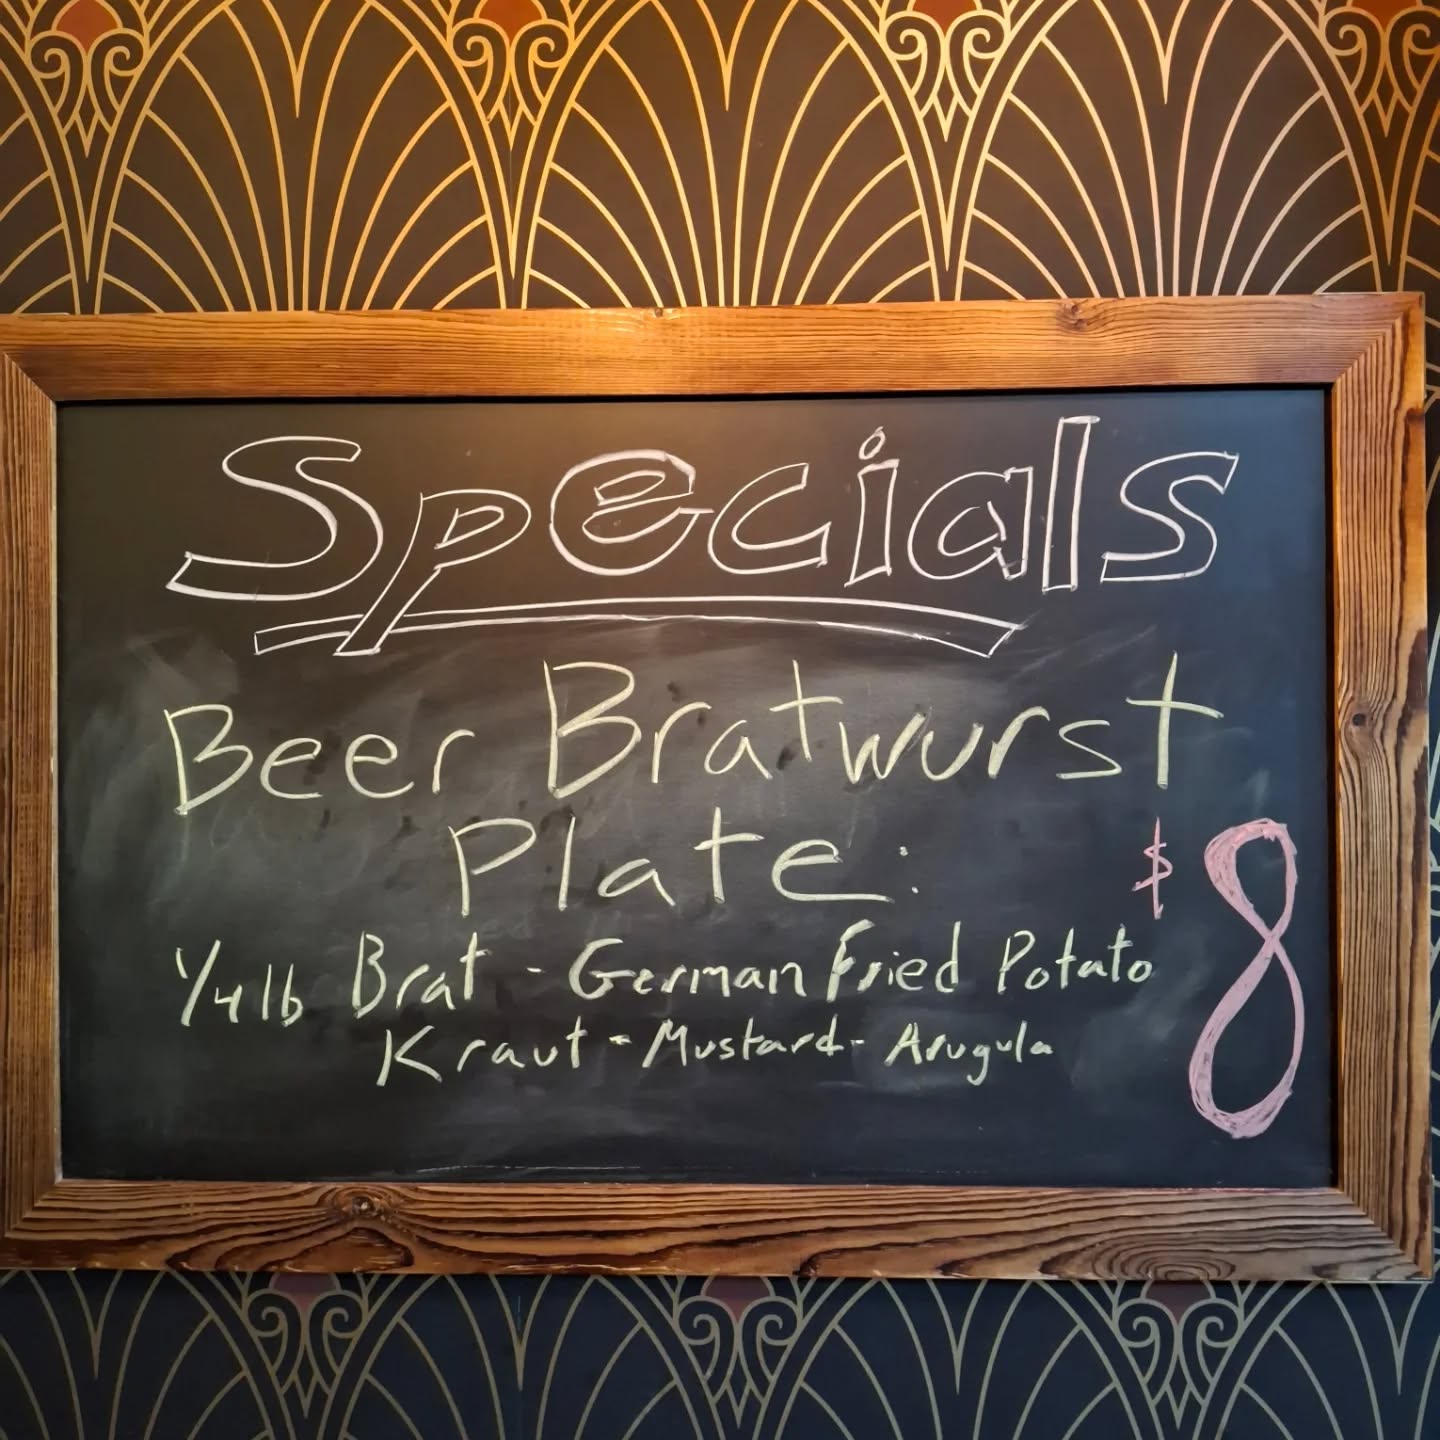 Specials
Beer Bratwurst
Plate:
$8
1/4 lb Brat - German Fried Potato
Kraut - Mustard - Arugula